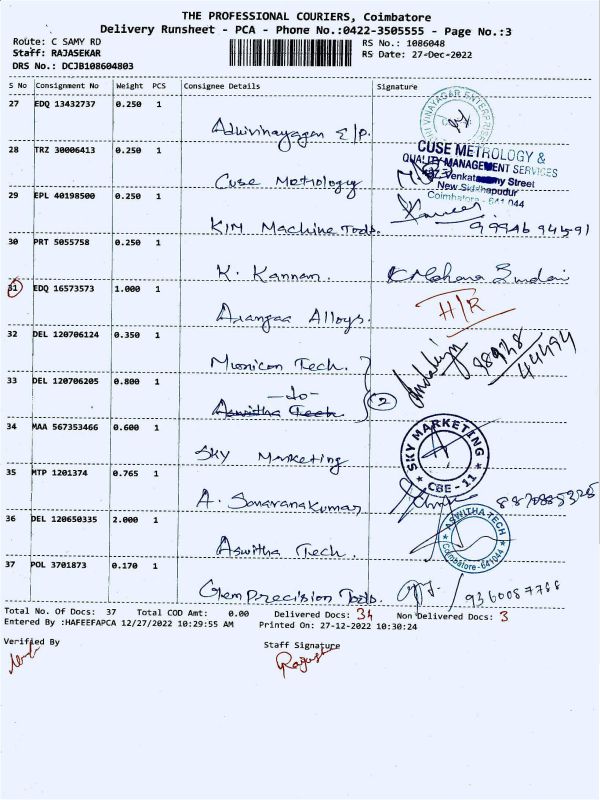 THE PROFESSIONAL COURIERS, Coimbatore
Delivery Runsheet - PCA - Phone No.:0422-3505555 - Page No.:3
Route: C SAMY RD
RS No.: 1086048
Staff: RAJASEKAR
RS Date: 27-Dec-2022
DRS No.: DCJB108604803
S No Consignment No Weight PCS Consignee Details Signature
27 EDQ 13432737 0.250 1
Adhivinayagan E/p.
28 TRZ 30006413 0.250 1
CUSE METROLOGY &
QUALITY MANAGEMENT SERVICES
Street
New Siddhapudur
Coimbatore - 641 044
Cuse Metrology
29 EPL 40198500 0.250 1
KIM Machine Tools.
30 PRT 5055758 0.250 1
K. Kannan. K Mohana Sundari
31 EDQ 16573573 1.000 1
H/R
Arangaa Alloys.
32 DEL 120706124 0.350 1
Municon Tech. 98948 44494
33 DEL 120706205 0.800 1
-do-
Aswitha Tech 2
34 MAA 567353466 0.600 1
SKY MARKETING
CBE - 11
Sky Marketing
35 MTP 1201374 0.765 1
A. Saravanakumar
36 DEL 120650335 2.000 1
ASWITHA TECH
Coimbatore-641044
Aswitha Tech.
37 POL 3701873 0.170 1
Gem Precision Tools. 9360087788
Total No. Of Docs: 37 Total COD Amt: 0.00 Delivered Docs: 34 Non Delivered Docs: 3
Entered By :HAFEEFAPCA 12/27/2022 10:29:55 AM Printed On: 27-12-2022 10:30:24
Verified By Staff Signature